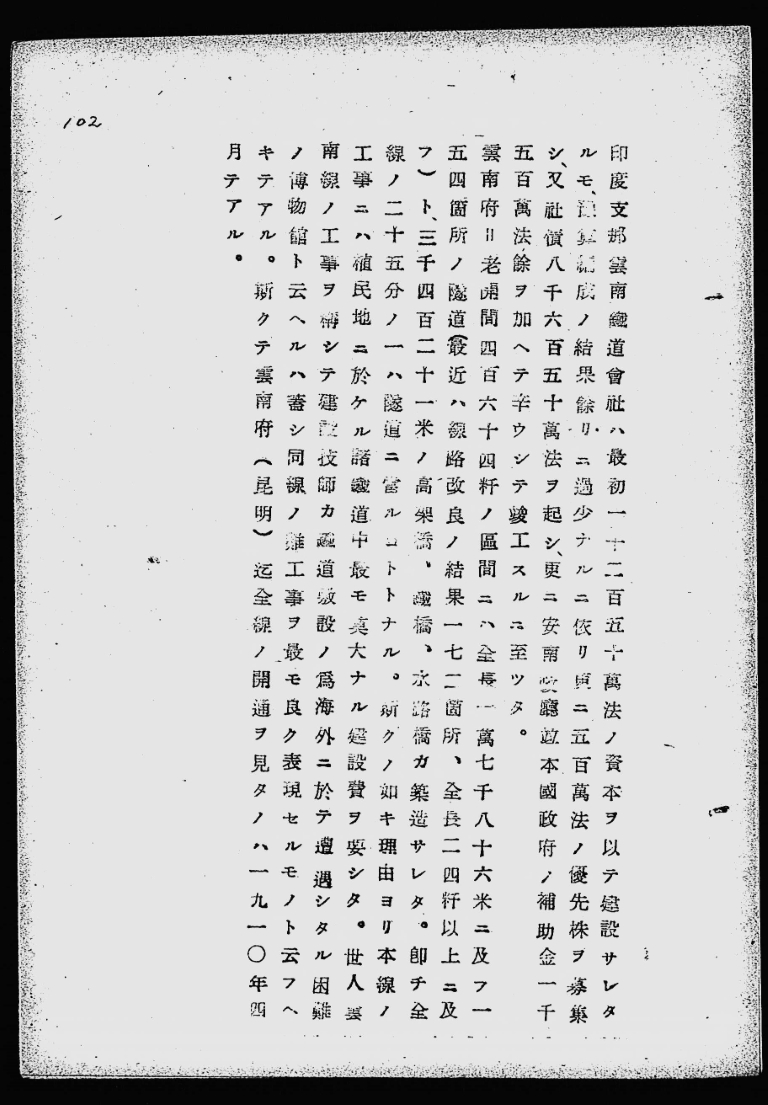 102
印度支那雲南鐵道會社ハ最初一千二百五十萬法ノ資本ヲ以テ建設サレタ
ルモ、豫算編成ノ結果餘リニ過少ナルニ依リ更ニ五百萬法ノ優先株ヲ募集
シ、又社債八千六百五十萬法ヲ起シ、更ニ安南政廳竝本國政府ノ補助金一千
五百萬法餘ヲ加ヘテ辛ウシテ竣工スルニ至ツタ。
雲南府〢老開間四百六十四粁ノ區間ニハ全長一萬七千八十六米ニ及フ一
五四箇所ノ隧道(最近ハ線路改良ノ結果一七二箇所、全長二四粁以上ニ及
フ)ト、三千四百二十一米ノ高架橋、鐵橋、水路橋カ築造サレタ。卽チ全
線ノ二十五分ノ一ハ隧道ニ當ルコトトナル。斯クノ如キ理由ヨリ本線ノ
工事ニハ植民地ニ於ケル諸鐵道中最モ莫大ナル建設費ヲ要シタ。世人雲
南線ノ工事ヲ稱シテ建設技師カ鐵道敷設ノ爲海外ニ於テ遭遇シタル困難
ノ博物館ト云ヘルハ蓋シ同線ノ難工事ヲ最モ良ク表現セルモノト云フヘ
キテアル。斯クテ雲南府(昆明)迄全線ノ開通ヲ見タノハ一九一〇年四
月テアル。